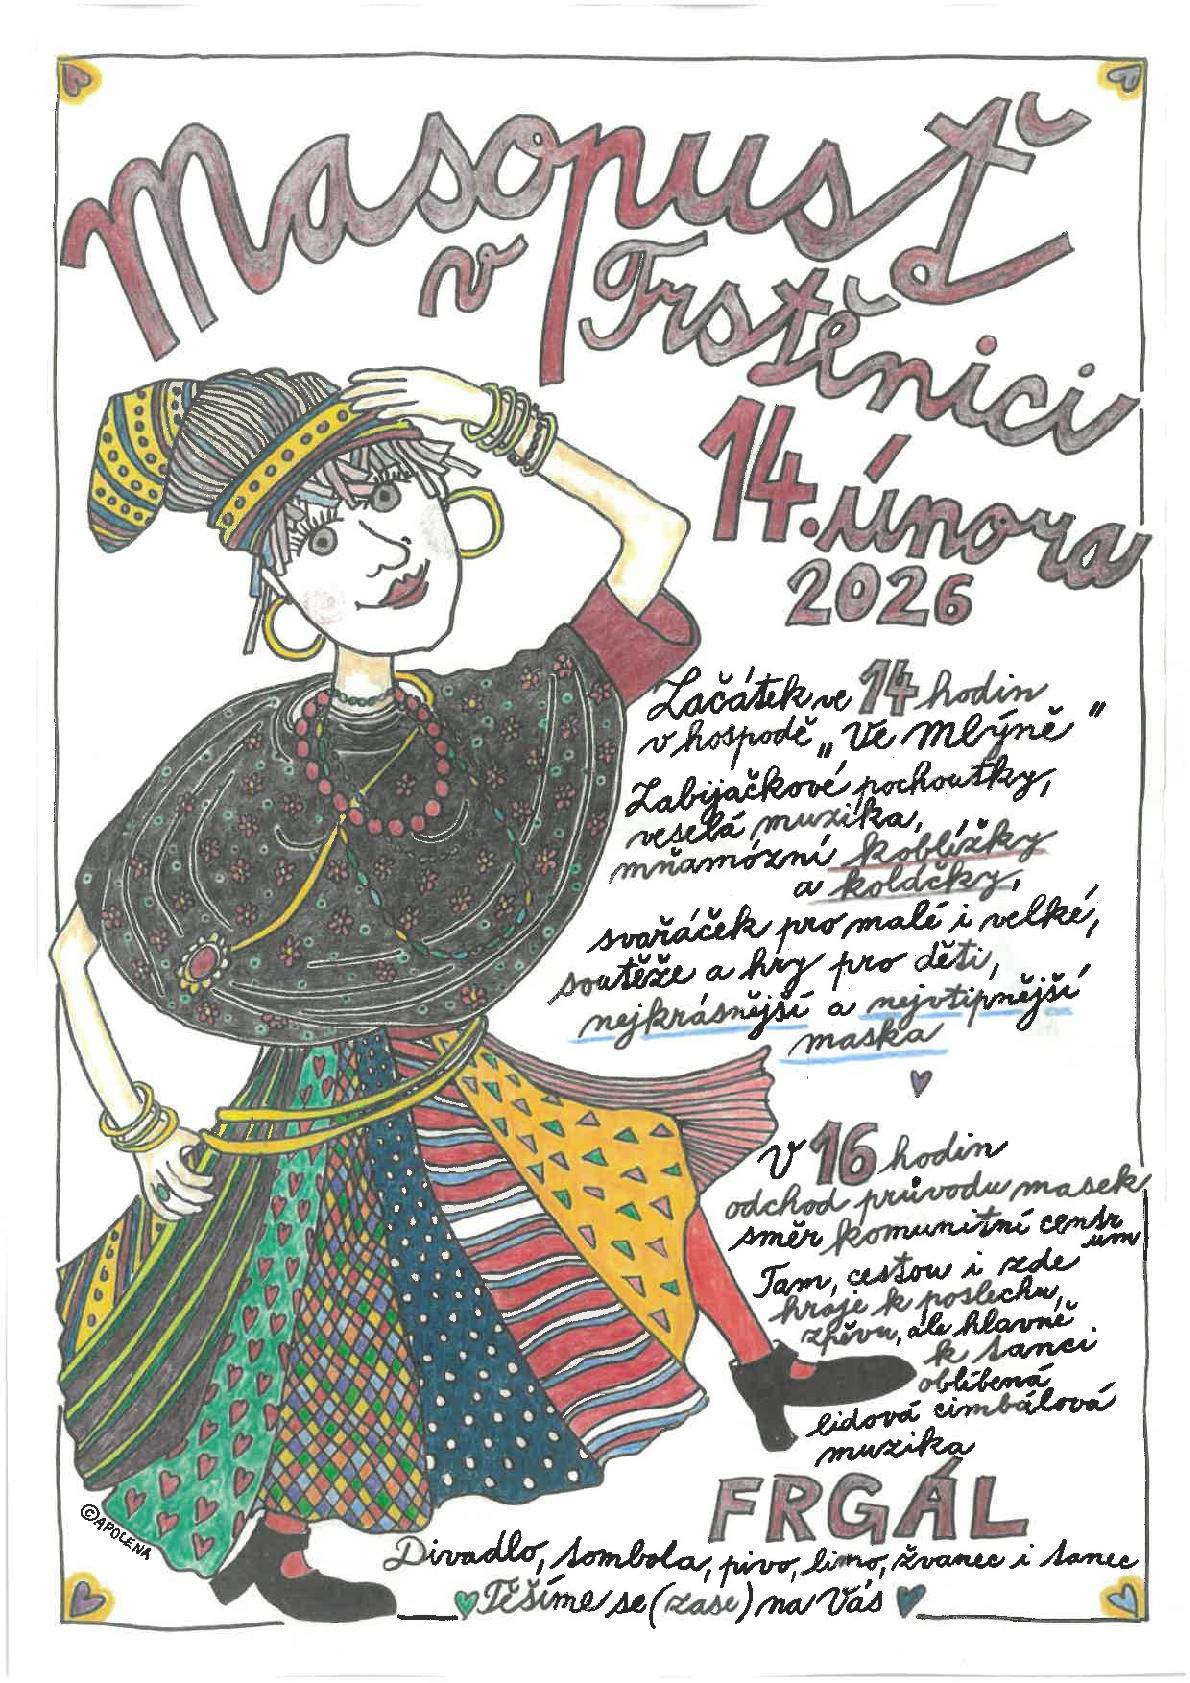 Masopusť
v Trstěnici
14. února
2026
Začátek ve 14 hodin
v hospodě „Ve Mlýně"
Zabijačkové pochoutky,
veselá muzika,
mňamózní koblížky
a koláčky,
svařáček pro malé i velké,
soutěže a hry pro děti,
nejkrásnější a nejvtipnější
maska
V 16 hodin
odchod průvodu masek
směr komunitní centr
um
Tam, cestou i zde
hraje k poslechu,
zpěvu, ale hlavně
k tanci
oblíbená
lidová cimbálová
muzika
FRGÁL
Divadlo, tombola, pivo, limo, žvanec i tanec
Těšíme se (zase) na Vás
©APOLENA